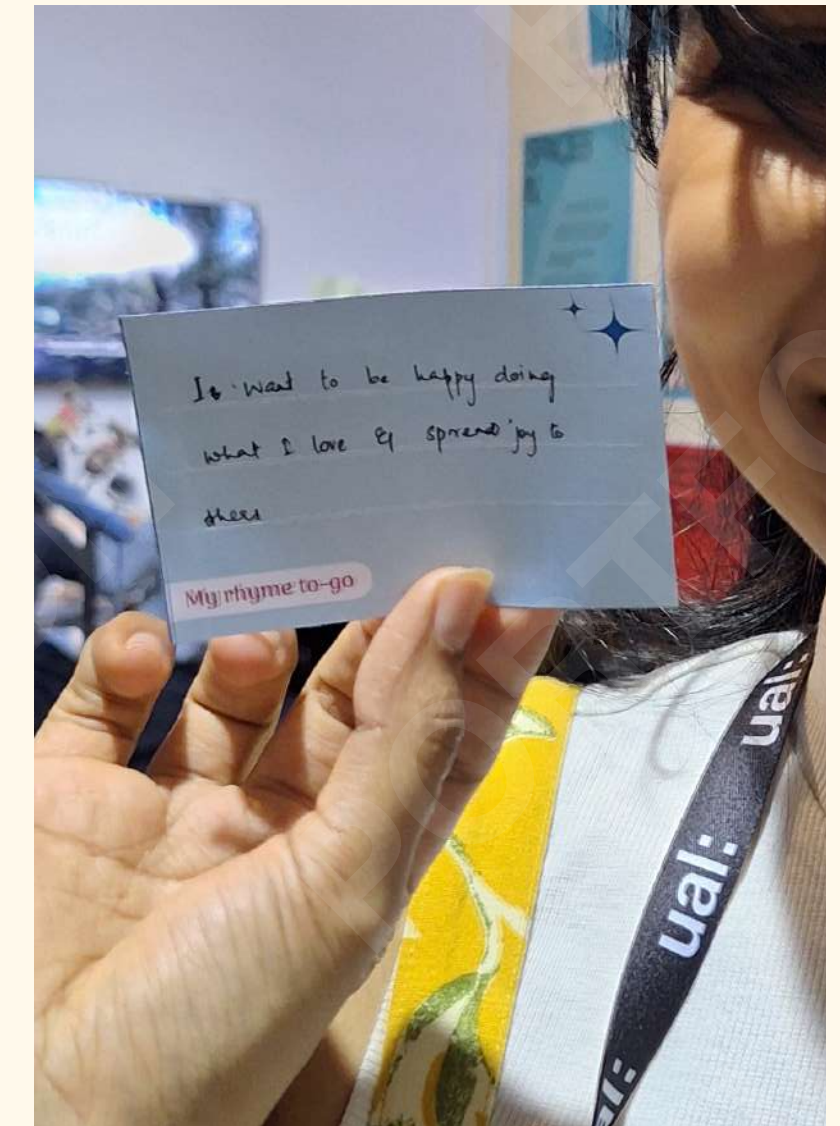 I want to be happy doing
what I love & spread joy to
others
My rhyme to-go
ual:
ual: